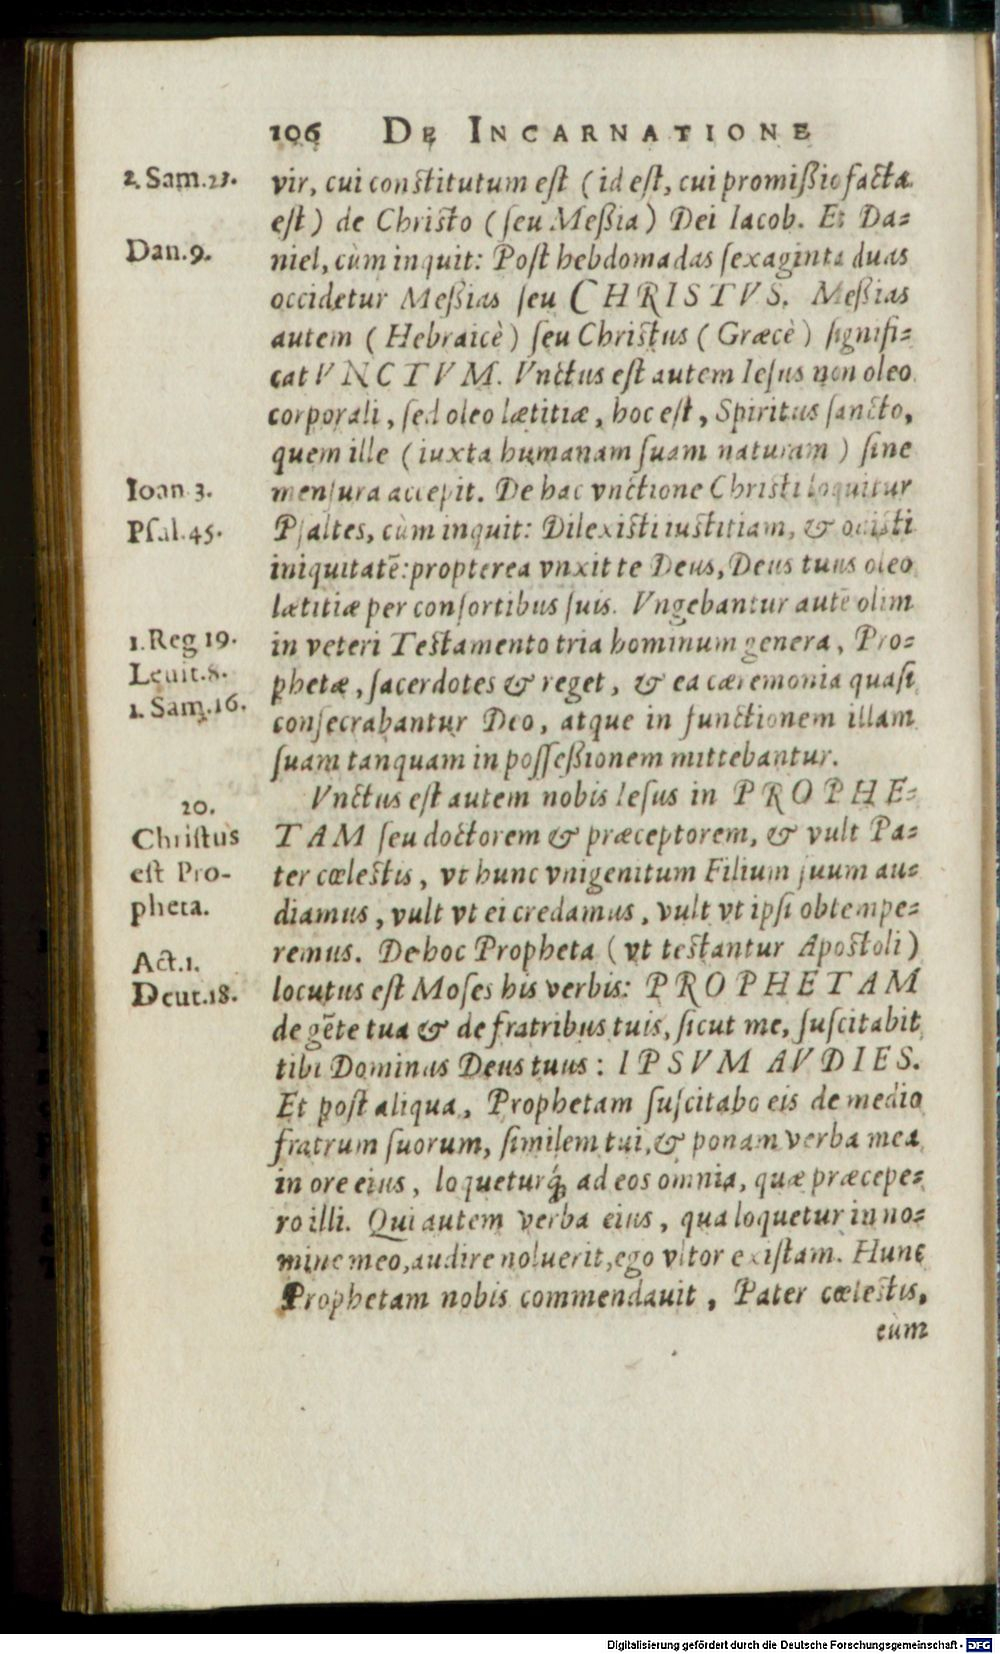 106 DE INCARNATIONE
2. Sam. 23.
vir, cui constitutum est (id est, cui promißio facta
est) de Christo (seu Meßia) Dei Iacob. Et Da=
Dan. 9.
niel, cùm inquit: Post hebdomadas sexaginta duas
occidetur Meßias seu CHRISTVS. Meßias
autem (Hebraicè) seu Christus (Græcè) signifi=
cat VNCTVM. Vnctus est autem Iesus non oleo
corporali, sed oleo lætitiæ, hoc est, Spiritus sancto,
quem ille (iuxta humanam suam naturam) sine
Ioan 3.
mensura accepit. De hac vnctione Christi loquitur
Psal. 45.
Psaltes, cùm inquit: Dilexisti iustitiam, & odisti
iniquitatē: propterea vnxit te Deus, Deus tuus oleo
lætitiæ per consortibus suis. Vngebantur autē olim
1. Reg 19.
in veteri Testamento tria hominum genera, Pro=
Leuit. 8.
phetæ, sacerdotes & reget, & ea cæremonia quasi
1. Sam. 16.
consecrabantur Deo, atque in functionem illam
suam tanquam in posseßionem mittebantur.
20.
Christus
est Pro-
pheta.
Vnctus est autem nobis Iesus in PROPHE=
TAM seu doctorem & præceptorem, & vult Pa=
ter cœlestis, vt hunc vnigenitum Filium suum au=
diamus, vult vt ei credamus, vult vt ipsi obtempe=
Act. 1.
remus. De hoc Propheta (vt testantur Apostoli)
Deut. 18.
locutus est Moses his verbis: PROPHETAM
de gēte tua & de fratribus tuis, sicut me, suscitabit
tibi Dominus Deus tuus: IPSVM AVDIES.
Et post aliqua, Prophetam suscitabo eis de medio
fratrum suorum, similem tui, & ponam verba mea
in ore eius, loqueturq́; ad eos omnia, quæ præcepe=
ro illi. Qui autem verba eius, qua loquetur in no=
mine meo, audire noluerit, ego vltor existam. Hunc
Prophetam nobis commendauit, Pater cœlestis,
cùm
Digitalisierung gefördert durch die Deutsche Forschungsgemeinschaft - DFG